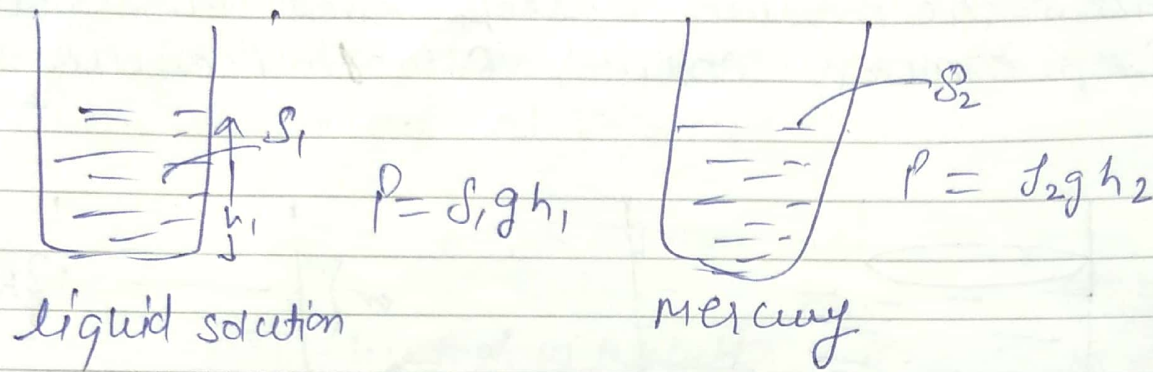 S₂
S₁
h₁
P = S₁gh₁
P = S₂gh₂
liquid solution
Mercury